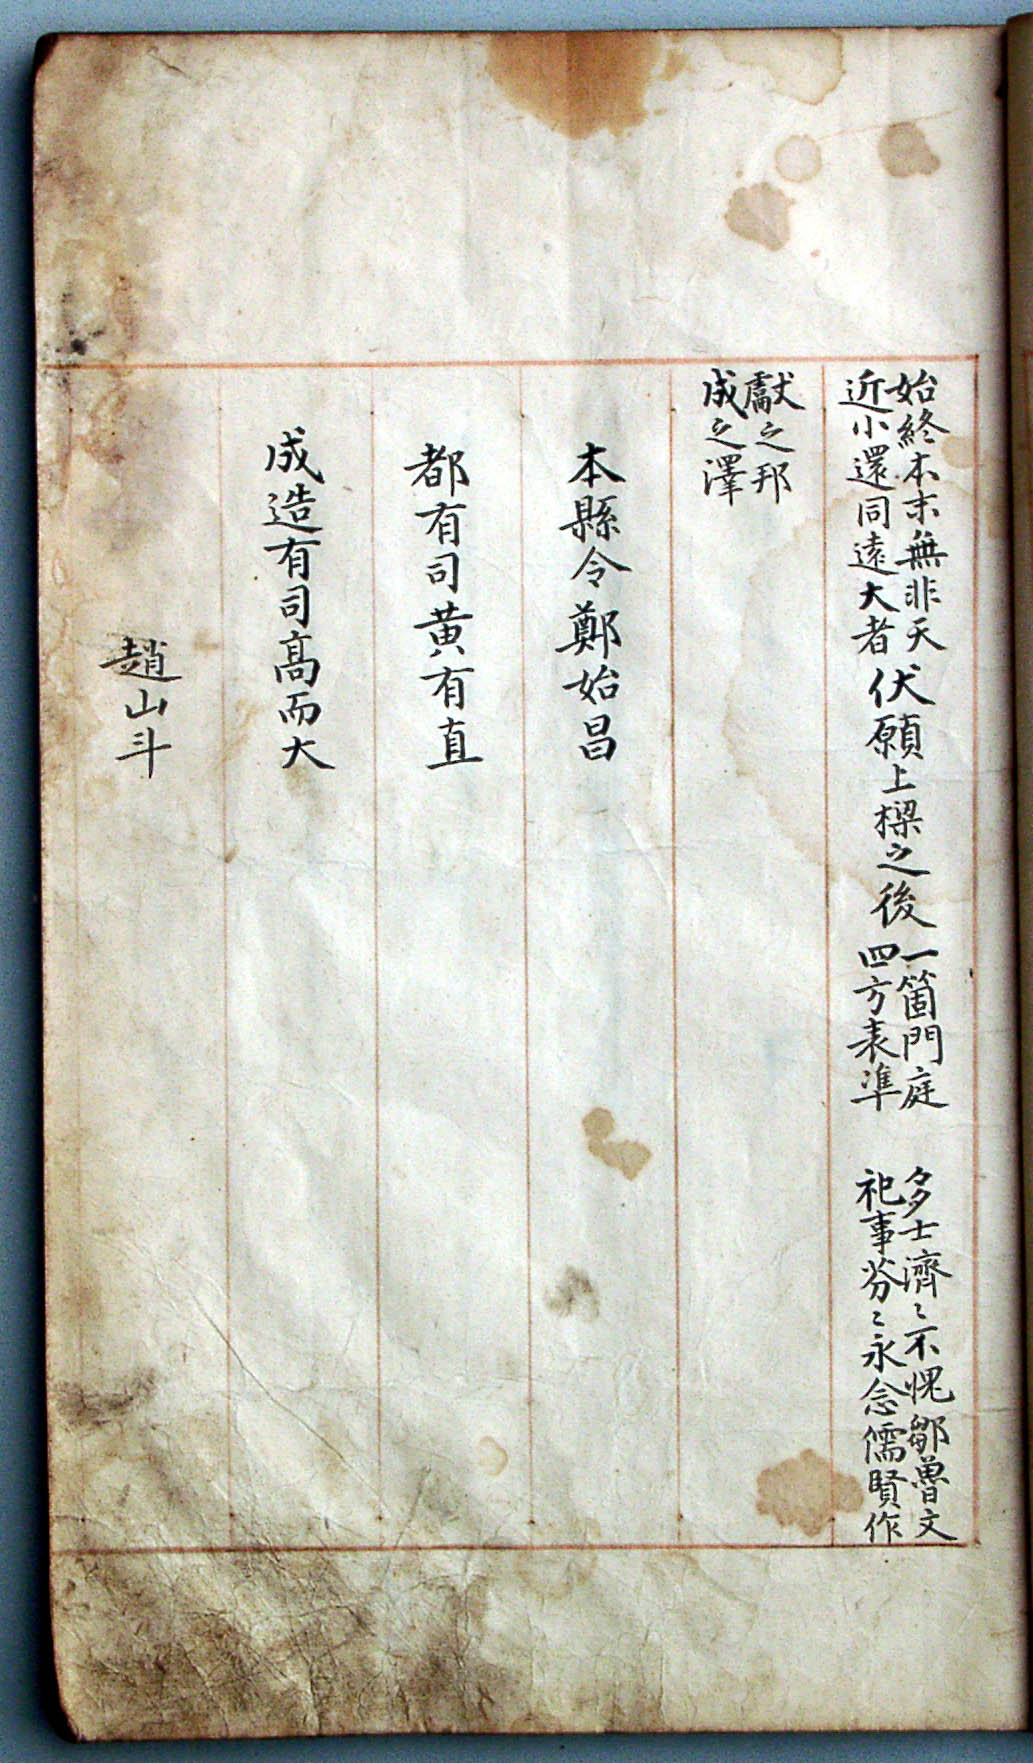 始終本末無非天
近小還同遠大者
伏願上樑之後
一箇門庭
四方表準
多士濟〻不愧鄒魯文
祀事芬〻永念儒賢作
獻之邦
成之澤
本縣令鄭始昌
都有司黃有直
成造有司高而大
趙山斗